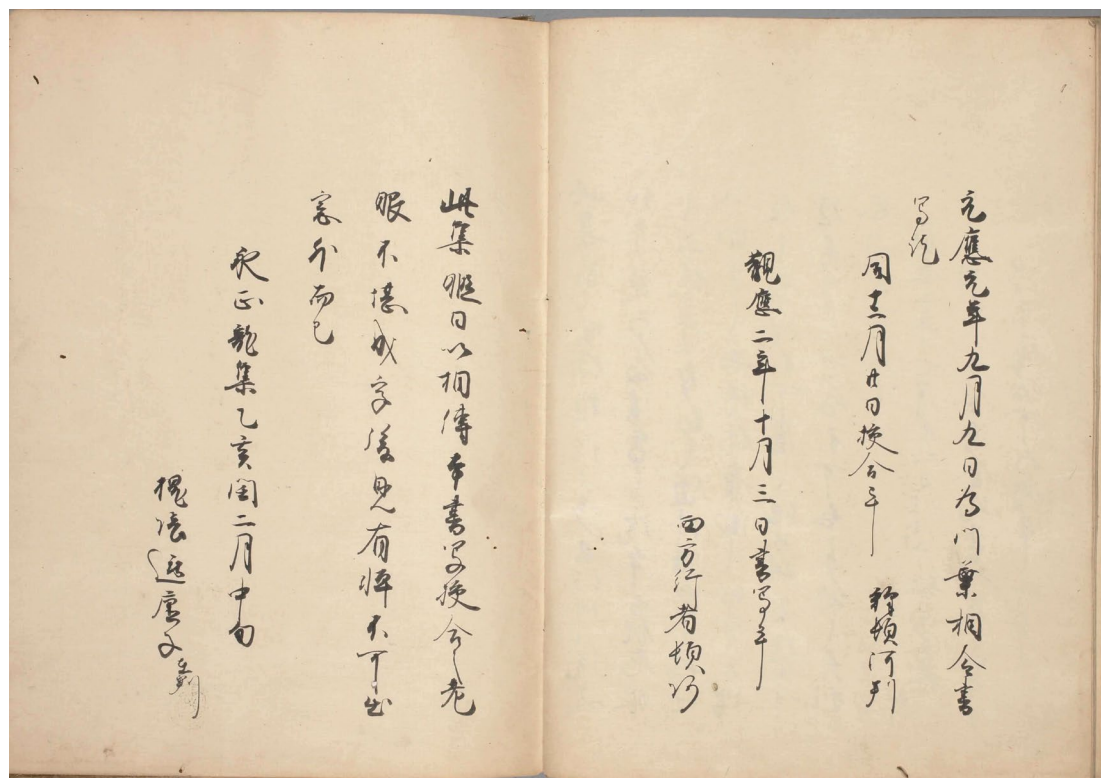 元應元年九月九日為門葉相令書
写訖
同十二月廿日挍合畢
釋頓阿判
觀應二年十月三日書写畢
西方行者頓阿
此集雖日以相傳本書写挍合老
眼不堪成字後見有憚不可出
窓外而已
永正龍集乙亥閏二月中旬
槐陰逍虚子 在判